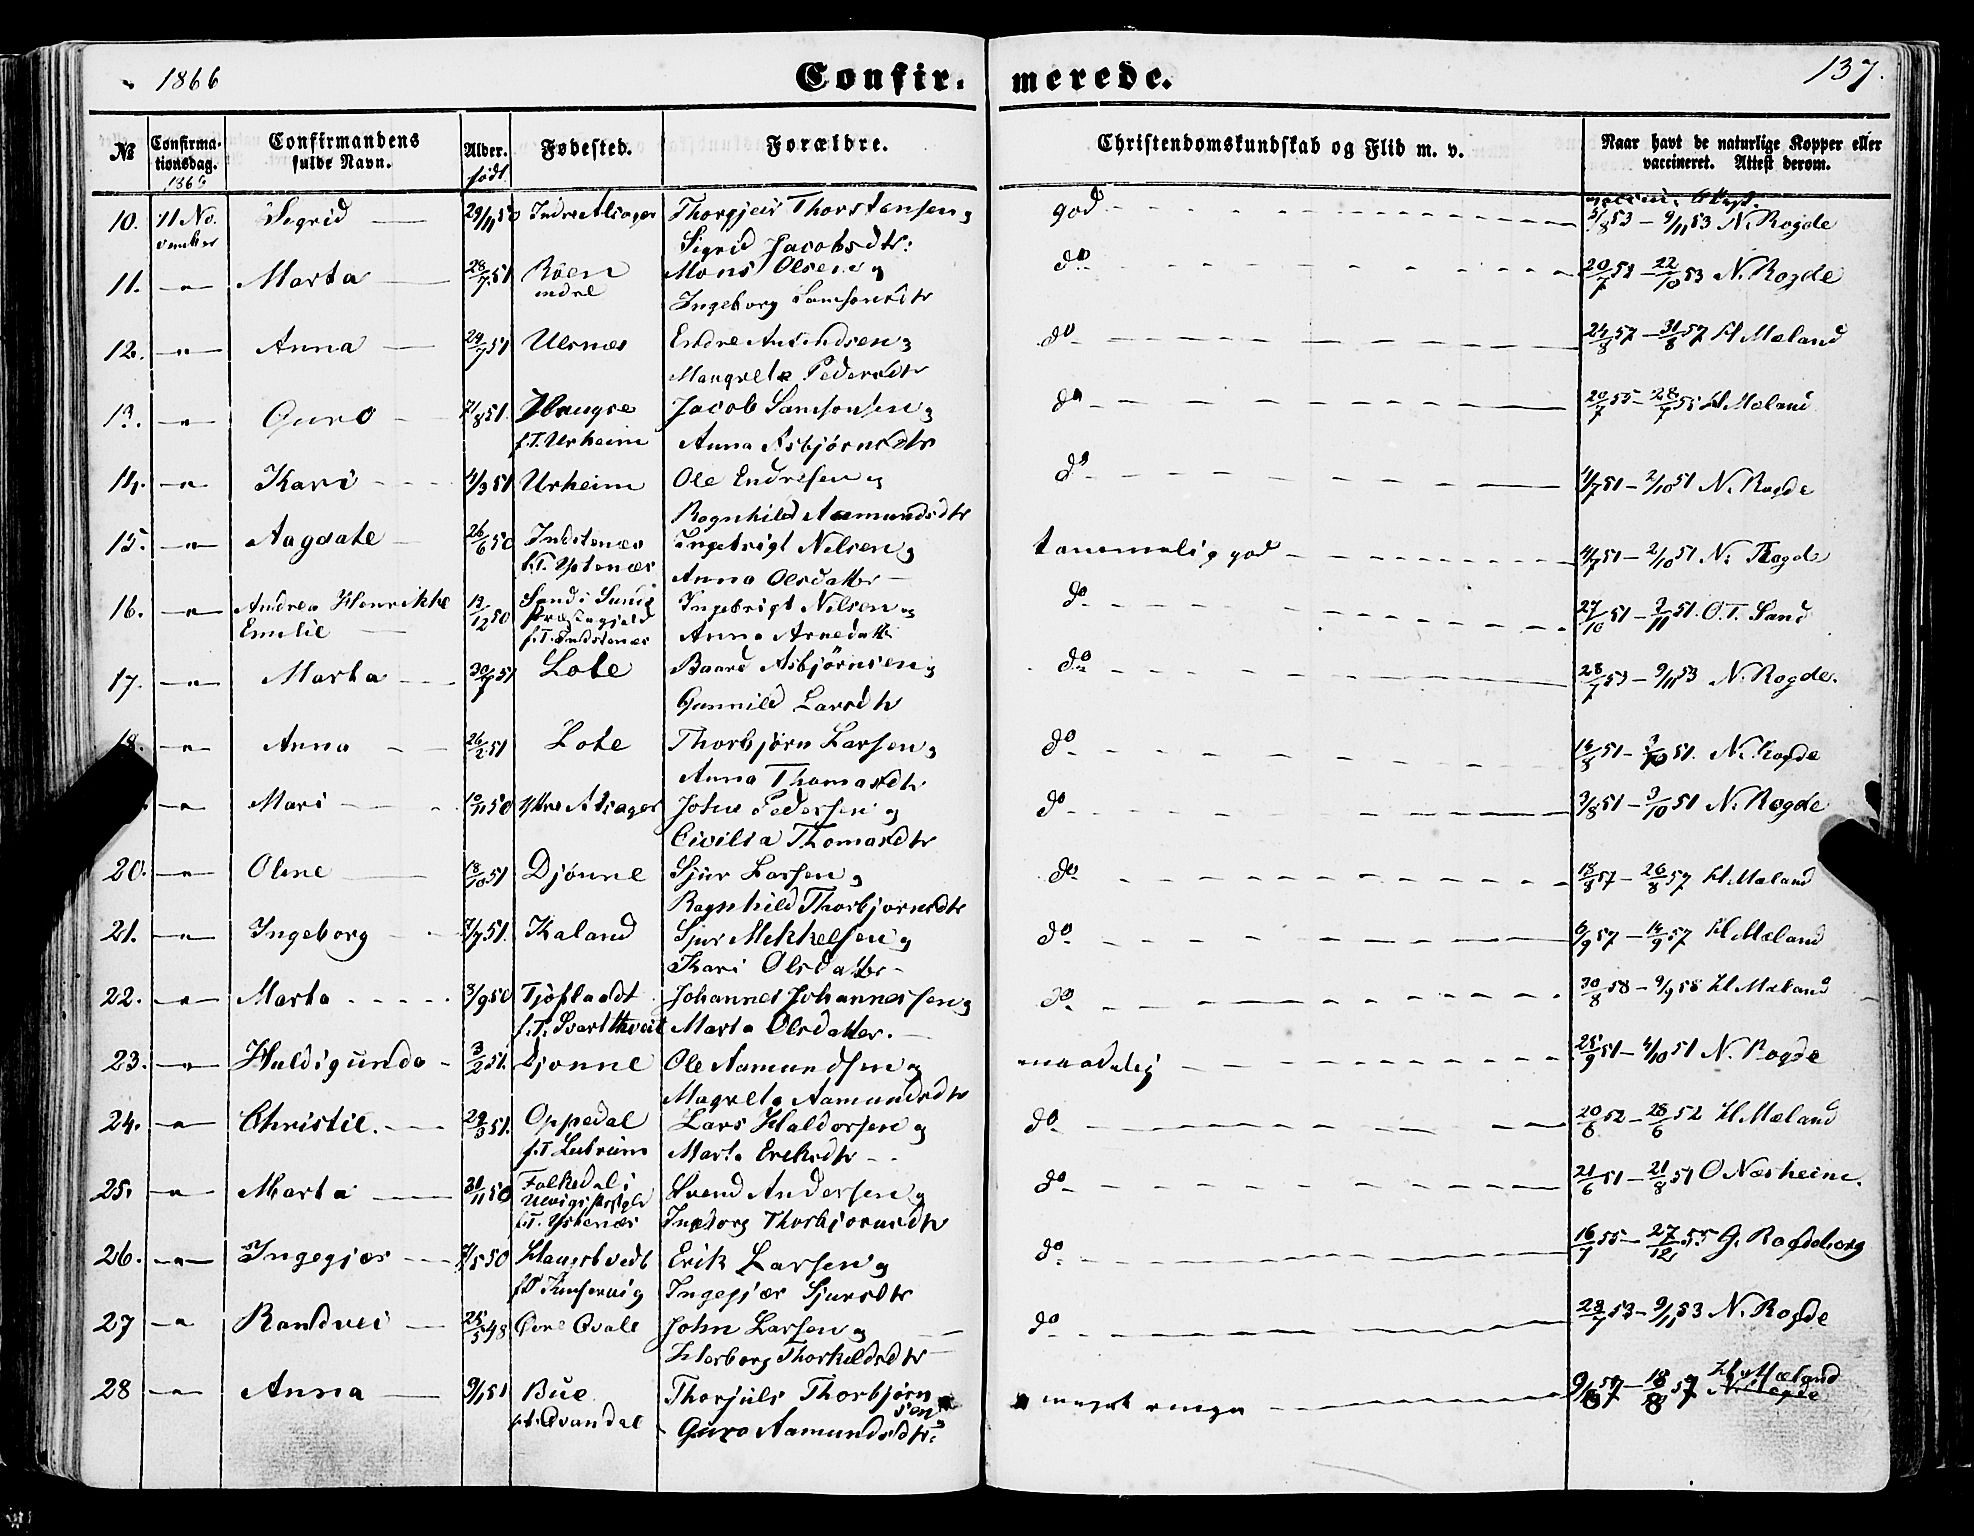 1866 Confirmerede. 137.
№ Confirmationsdag. 1866 Confirmandens fulde Navn. Alder. født Fødested. Forældre. Christendomskundskab og Flid m. v. Naar havt de naturlige Kopper eller vaccineret. Attest derom.
10. 11 November Sigrid 29/11 50 Indre Alsager Thorgjeir Thorstensen og god 5/8 53 – 9/11 53 N. Rogde
Sigrid Jacobsdtr:
11. –"– Marta 28/7 51 Mons Olsen og do 20/7 51 22/10 53 N. Rogde
indre Ingeborg Samsonsdtr
12. –"– Anna 24/7 51 Ulsnæs Endre Amundsen og do 24/8 57 – 31/8 57 H Mæland
Margrete Pedersdtr
13. –"– Guro 7/8 51. Haugse Jacob Samsonsen og do 20/7 55 – 28/7 55 H Mæland
f.T. Urheim Anna Asbjørnsdtr
14. –"– Kari 4/3 51 Urheim Ole Endresen og do 4/7 51 – 2/10 51 N. Rogde
Ragnhild Aamundsdtr
15. –"– Aagaate 26/6 50 Indstenæs Ingebrigt Nilsen og temmelig god 4/7 51 – 2/10 51 N. Rogde
f.T. Ystenæs Anna Olsdatter
16. –"– Andrea Henrikke 13/12 50 Sand i Sunds Ingebrigt Nilsen og do 27/10 51 – 3/11 51. O.T. Sand
Emelie Præstegjeld
f.T. Indstenæs Anna Arnedatter
17. –"– Marta 30/7 51 Lote Baard Asbjørnsen og do 28/7 53 – 9/11 53 N. Rogde.
Gunnild Larsdtr
18. –"– Anna 26/2 51 Lote Thorbjørn Larsen og do 14/8 51 – 3/10 51. N. Rogde
Anna Thomasdtr
–"– Mari 10/11 50 Ytre Alsager John Pedersen og do 3/8 51 – 3/10 51 N. Rogde
Civilla Thomasdtr
20. –"– Olene 18/10 51 Djønne Sjur Larsen og do 18/8 57 – 26/8 57 H. Mæland
Ragnhild Thorbjørnsdtr
21. –"– Ingeborg 7/7 51. Kaland Sjur Mikkelsen og do 6/9 57 – 14/9 57 H Mæland
Kari Olsdatter
22. –"– Marta 3/9 50 Tjoflaadt Johannes Johannessen og do 30/8 58 – 9/9 58 H Mæland
f.T. Svartthveit Marta Olsdatter.
23. –"– Huldigunda 3/2 51. Djønne Ole Aamundsen og maadelig 25/9 51 – 4/10 51 N. Rogde
Magrete Aamundsdtr
24. –"– Christie. 29/3 51. Oppedal Lars Haldorsen og do 20/6 52 – 28/6 52 H. Mæland
f.T. Lutreim Marta Eriksdtr
25. –"– Marta 30/11 50 Folkedal i Svend Andersen og do 21/6 51 – 21/8 51 O Næsheim.
Ulvigs Prstgld
f.T. Ystenæs Ingeborg Thorbjørnsdtr
26. –"– Ingegjær 7/5 50 Haugstvedt Erik Larsen og do 16/7 55 – 27/12 55 G. Rosseborg
f.T. Kinservig Ingegjær Sjursdtr
27 –"– Randvei 25/5 48 Øvre Qvale John Larsen og do 28/7 53 – 9/11 53 N. Rogde
Herborg Thorkildsdtr
28 –"– Anna 9/1 51 Bue Thorjuls Thorbjørnsen og meget ringe 9/8 57 – 18/8 57 H. Mæland
f.T. Qvandal Guro Aamundsdtr: